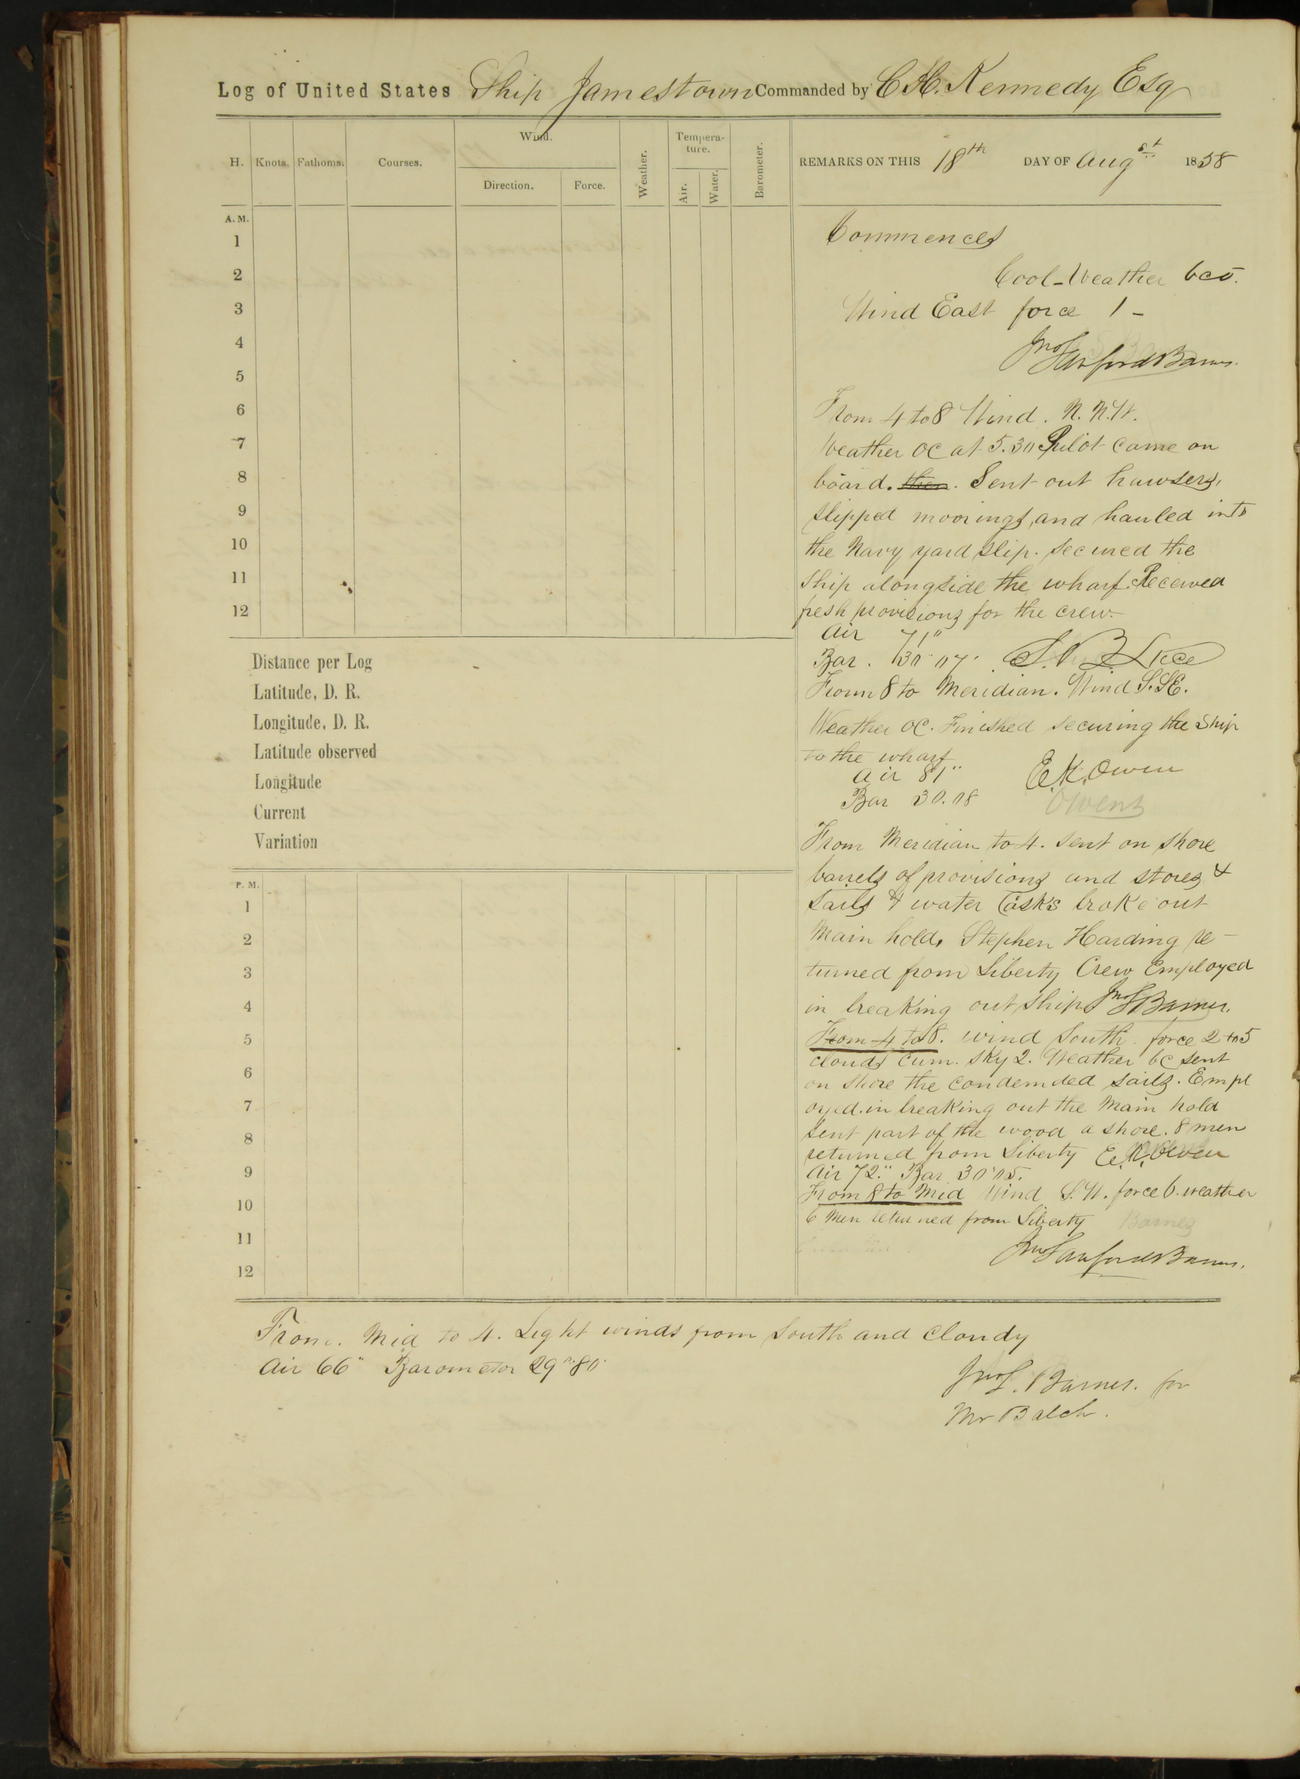 Log of United States Ship Jamestown Commanded by C. H. Kennedy Esq
H. Knots. Fathoms. Courses. Wind. Direction. Force. Weather. Tempera-ture. Air. Water. Barometer.
REMARKS ON THIS 18th DAY OF Augst 1858
A. M.
1
2
3
4
5
6
7
8
9
10
11
12
Commences
Cool Weather bco.
Wind East force 1 -
Jno Sanford Barnes.
From 4 to 8 Wind. N. N. W.
Weather OC at 5.30 Pilot came on
board. then. Sent out hawsers,
slipped moorings, and hauled into
the Navy yard slip. Secured the
Ship alongside the wharf. Received
fresh provisions for the crew.
Air 71°
Bar. 30.07. S. B. Luce
From 8 to Meridian. Wind S.SE.
Weather OC. Finished securing the Ship
to the wharf
Air 81°
Bar 30.08
E. K. Owen
Owens
From Meridian to 4. sent on shore
barrels of provisions and stores &
Sails & water Casks broke out
Main hold, Stephen Harding re-
turned from Liberty Crew Employed
in breaking out Ship Jno S Barnes.
From 4 to 8. wind South force 2 to 5
clouds Cum. sky 2. Weather bc sent
on shore the condemded sails. Empl
oyed in breaking out the Main hold
sent part of the wood a shore. 8 men
returned from Liberty E. K. Owen
Air 72° Bar 30.05.
From 8 to Mid Wind S. W. force 6. weather
6 Men returned from Liberty Barnes
Jno Sanford Barnes.
Distance per Log
Latitude, D. R.
Longitude, D. R.
Latitude observed
Longitude
Current
Variation
P. M.
1
2
3
4
5
6
7
8
9
10
11
12
From. Mid to 4. Light winds from South and Cloudy
Air 66° Barometer 29.80
Jno S. Barnes. for
Mr Balch.